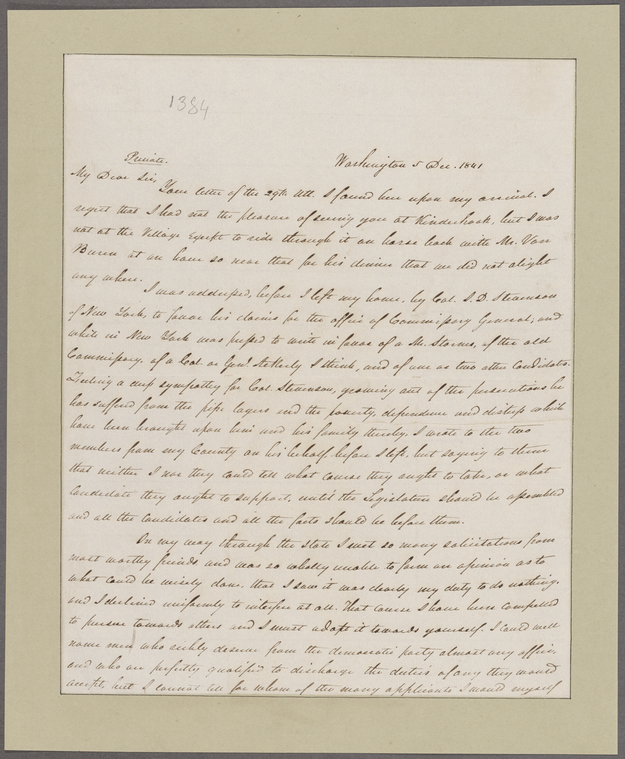 1384
Private. Washington 5 Dec. 1841
My Dear Sir,
Your letter of the 29th Ult. I found here upon my arrival. I
regret that I had not the pleasure of seeing you at Kinderhook, but I was
not at the Village except to ride through it on horse back with Mr. Van
Buren at an hour so near that for his dinner that we did not alight
any where.
I was addressed, before I left my home, by Col. J. D. Stevenson
of New York, to favor his claims for the office of Commissary General, and
while in New York was pressed to write in favor of a Mr. Storms, of the old
Commissary, of a Col. or Genl. Ackerly I think, and of one or two other candidates.
Feeling a deep sympathy for Col. Stevenson, growing out of the persecutions he
has suffered from the pipe layers and the poverty, dependence and distress which
have been brought upon him and his family thereby, I wrote to the two
members from my County on his behalf before I left, but saying to them
that neither I nor they could tell what course they ought to take, or what
candidate they ought to support, until the Legislature should be assembled
and all the candidates and all the facts should be before them.
On my way through the state I met so many solicitations from
most worthy friends and was so wholly unable to form an opinion as to
what could be wisely done, that I saw it was clearly my duty to do nothing,
and I declined uniformly to interfere at all. That course I have been compelled
to pursue towards others and I must adopt it towards yourself. I could well
name men who richly deserve from the democratic party almost any office,
and who are perfectly qualified to discharge the duties of any they would
accept, but I cannot tell for whom of the many applicants I would myself